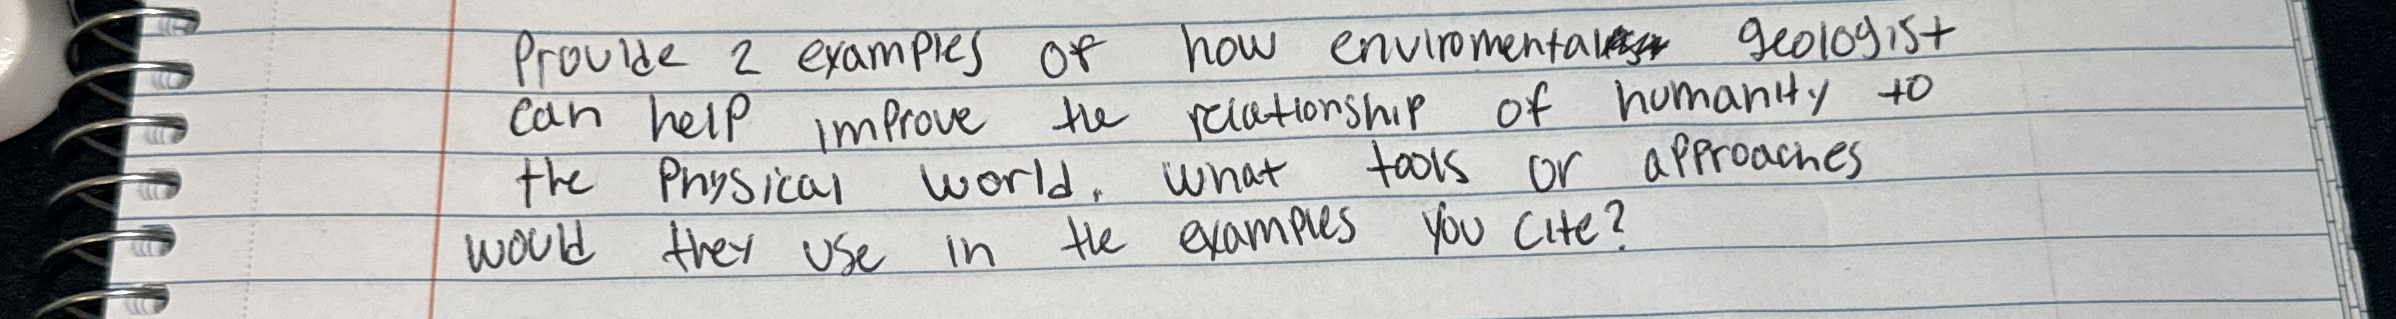 Provide 2 examples of how enviromental geologist
can help improve the relationship of humanity to
the physical world. What tools or approaches
would they use in the examples you cite?